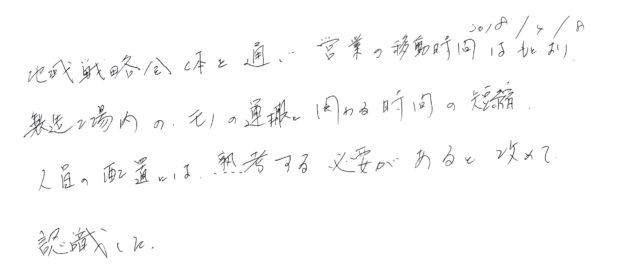 2018/4/8
地域戦略全体を通い 営業の移動時間はもとより、
製造工場内の、モノの運搬に関わる時間の短縮、
人員の配置には、熟考する必要があると改めて
認識した。